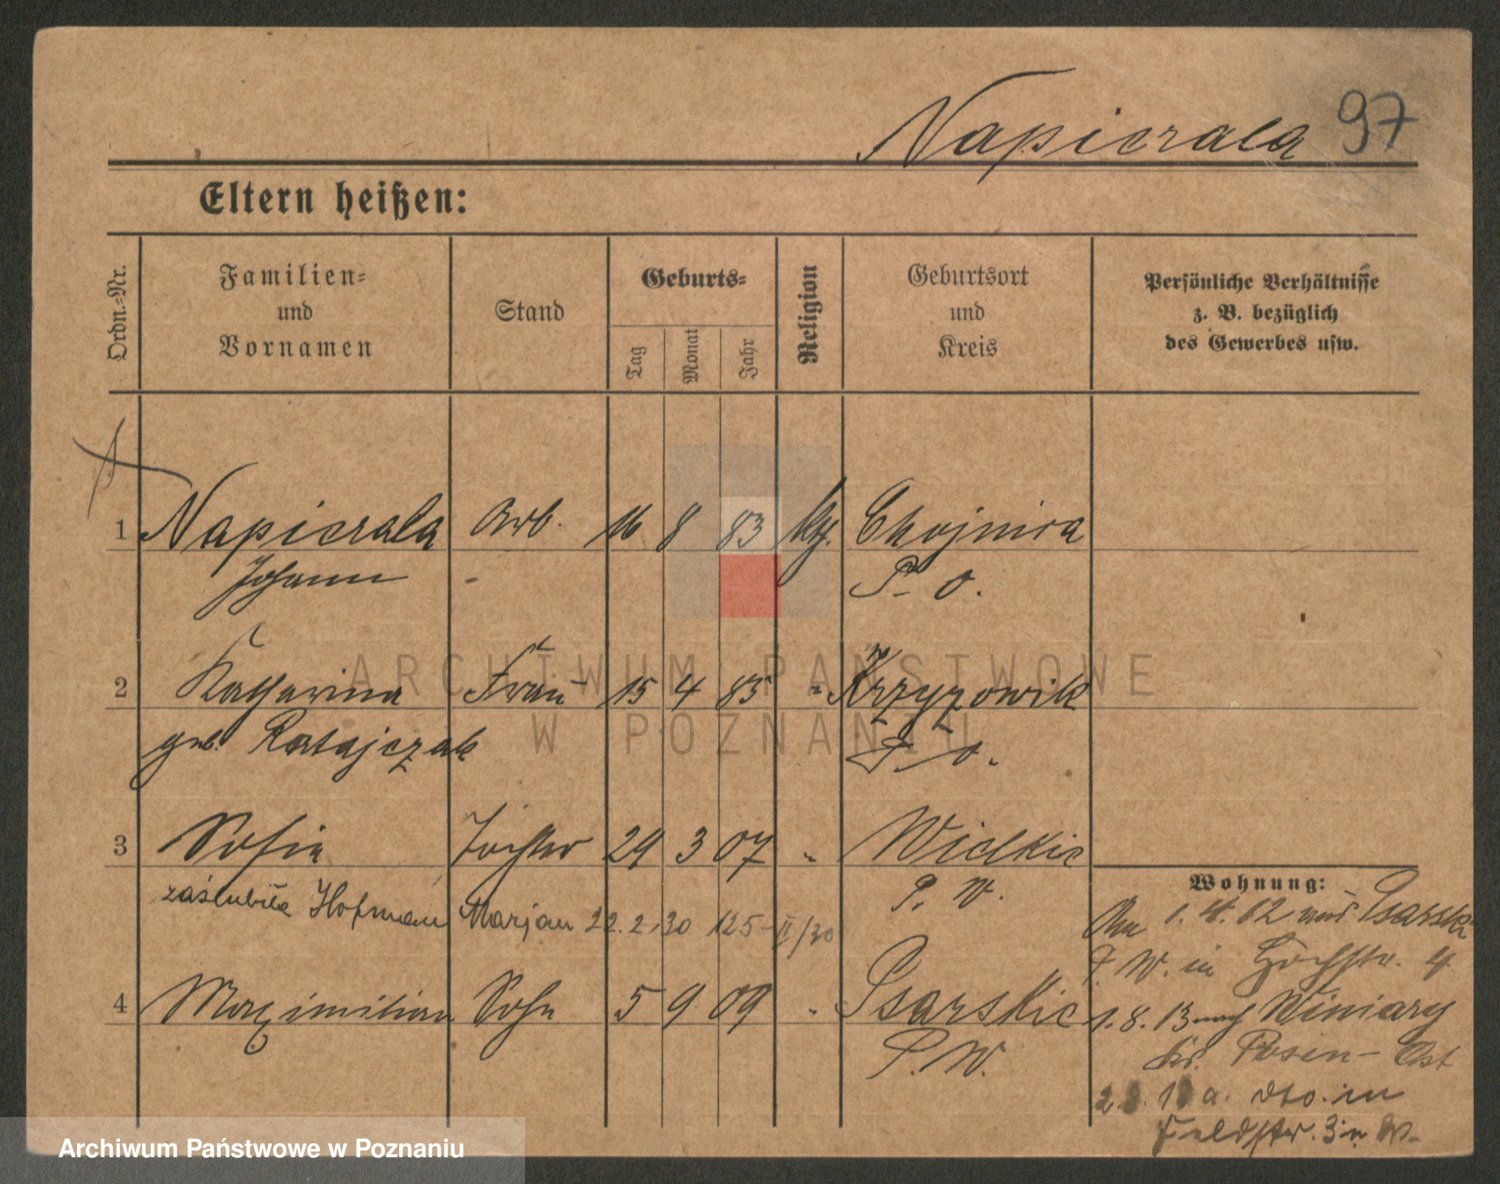 Napierala 97
Eltern heißen:
Ordn.-Nr.
Familien-
und
Vornamen
Stand
Geburts-
Tag
Monat
Jahr
Religion
Geburtsort
und
Kreis
Persönliche Verhältnisse
z. B. bezüglich
des Gewerbes usw.
1 Napierala Arb. 16 8 83 Chojnica
Johann - P. O.
2 Katharina Frau 15 4 85 " Krzyzowik
geb. Ratajczak P. O.
3 Sofie Tochter 29 3 07 " Wielkie
P. W.
zaślubiła Hofman Marjan 22.2.30 125-II/30
4 Maximilian Sohn 5 9 09 " Psarskie
P. W.
Wohnung:
1.4.12 Psarski
P. W. in Hochstr. 4
1.8.13 nach Winiary
Kr. Posen-Ost
dto. in
Feldstr. 3
ARCHIWUM PAŃSTWOWE
W POZNANIU
Archiwum Państwowe w Poznaniu